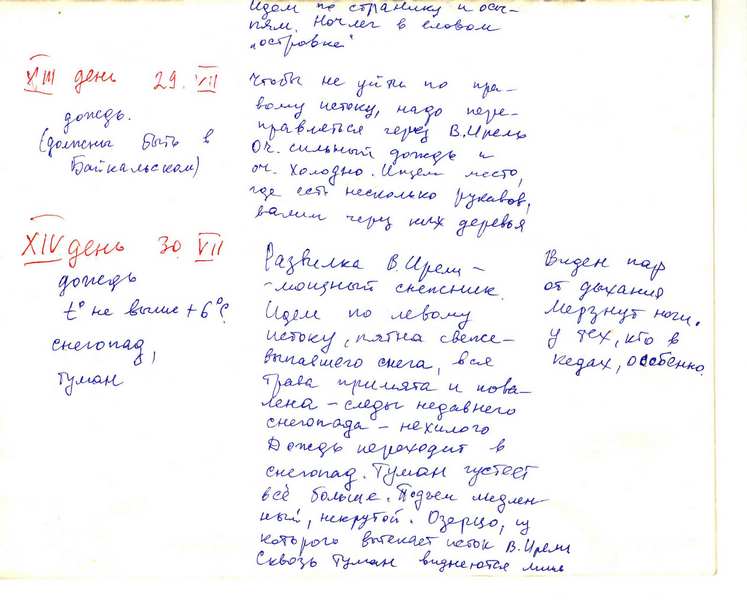 Идем по страннику и осы-
пям. Ночлег в еловом
"островке"
XIII день 29. VII
дождь.
(должны быть в
Байкальском)
Чтобы не уйти по пра-
вому истоку, надо пере-
правляться через В.Ирель
Оч. сильный дождь и
оч. холодно. Ищем место,
где есть несколько рукавов,
валим через них деревья
XIV день 30. VII
дождь
t° не выше +6°C.
снегопад,
туман
Развилка В.Ирели -
- мощный снежник.
Идем по левому
истоку, пятна свеже-
выпавшего снега, вся
трава примята и пова-
лена - следы недавнего
снегопада - нехилого
Дождь переходит в
снегопад. Туман густеет
всё больше. Подъем медлен-
ный, некрутой. Озерцо, из
которого вытекает исток В.Ирели
Сквозь туман виднеются лишь
Виден пар
от дыхания
Мерзнут ноги.
у тех, кто в
кедах, особенно.